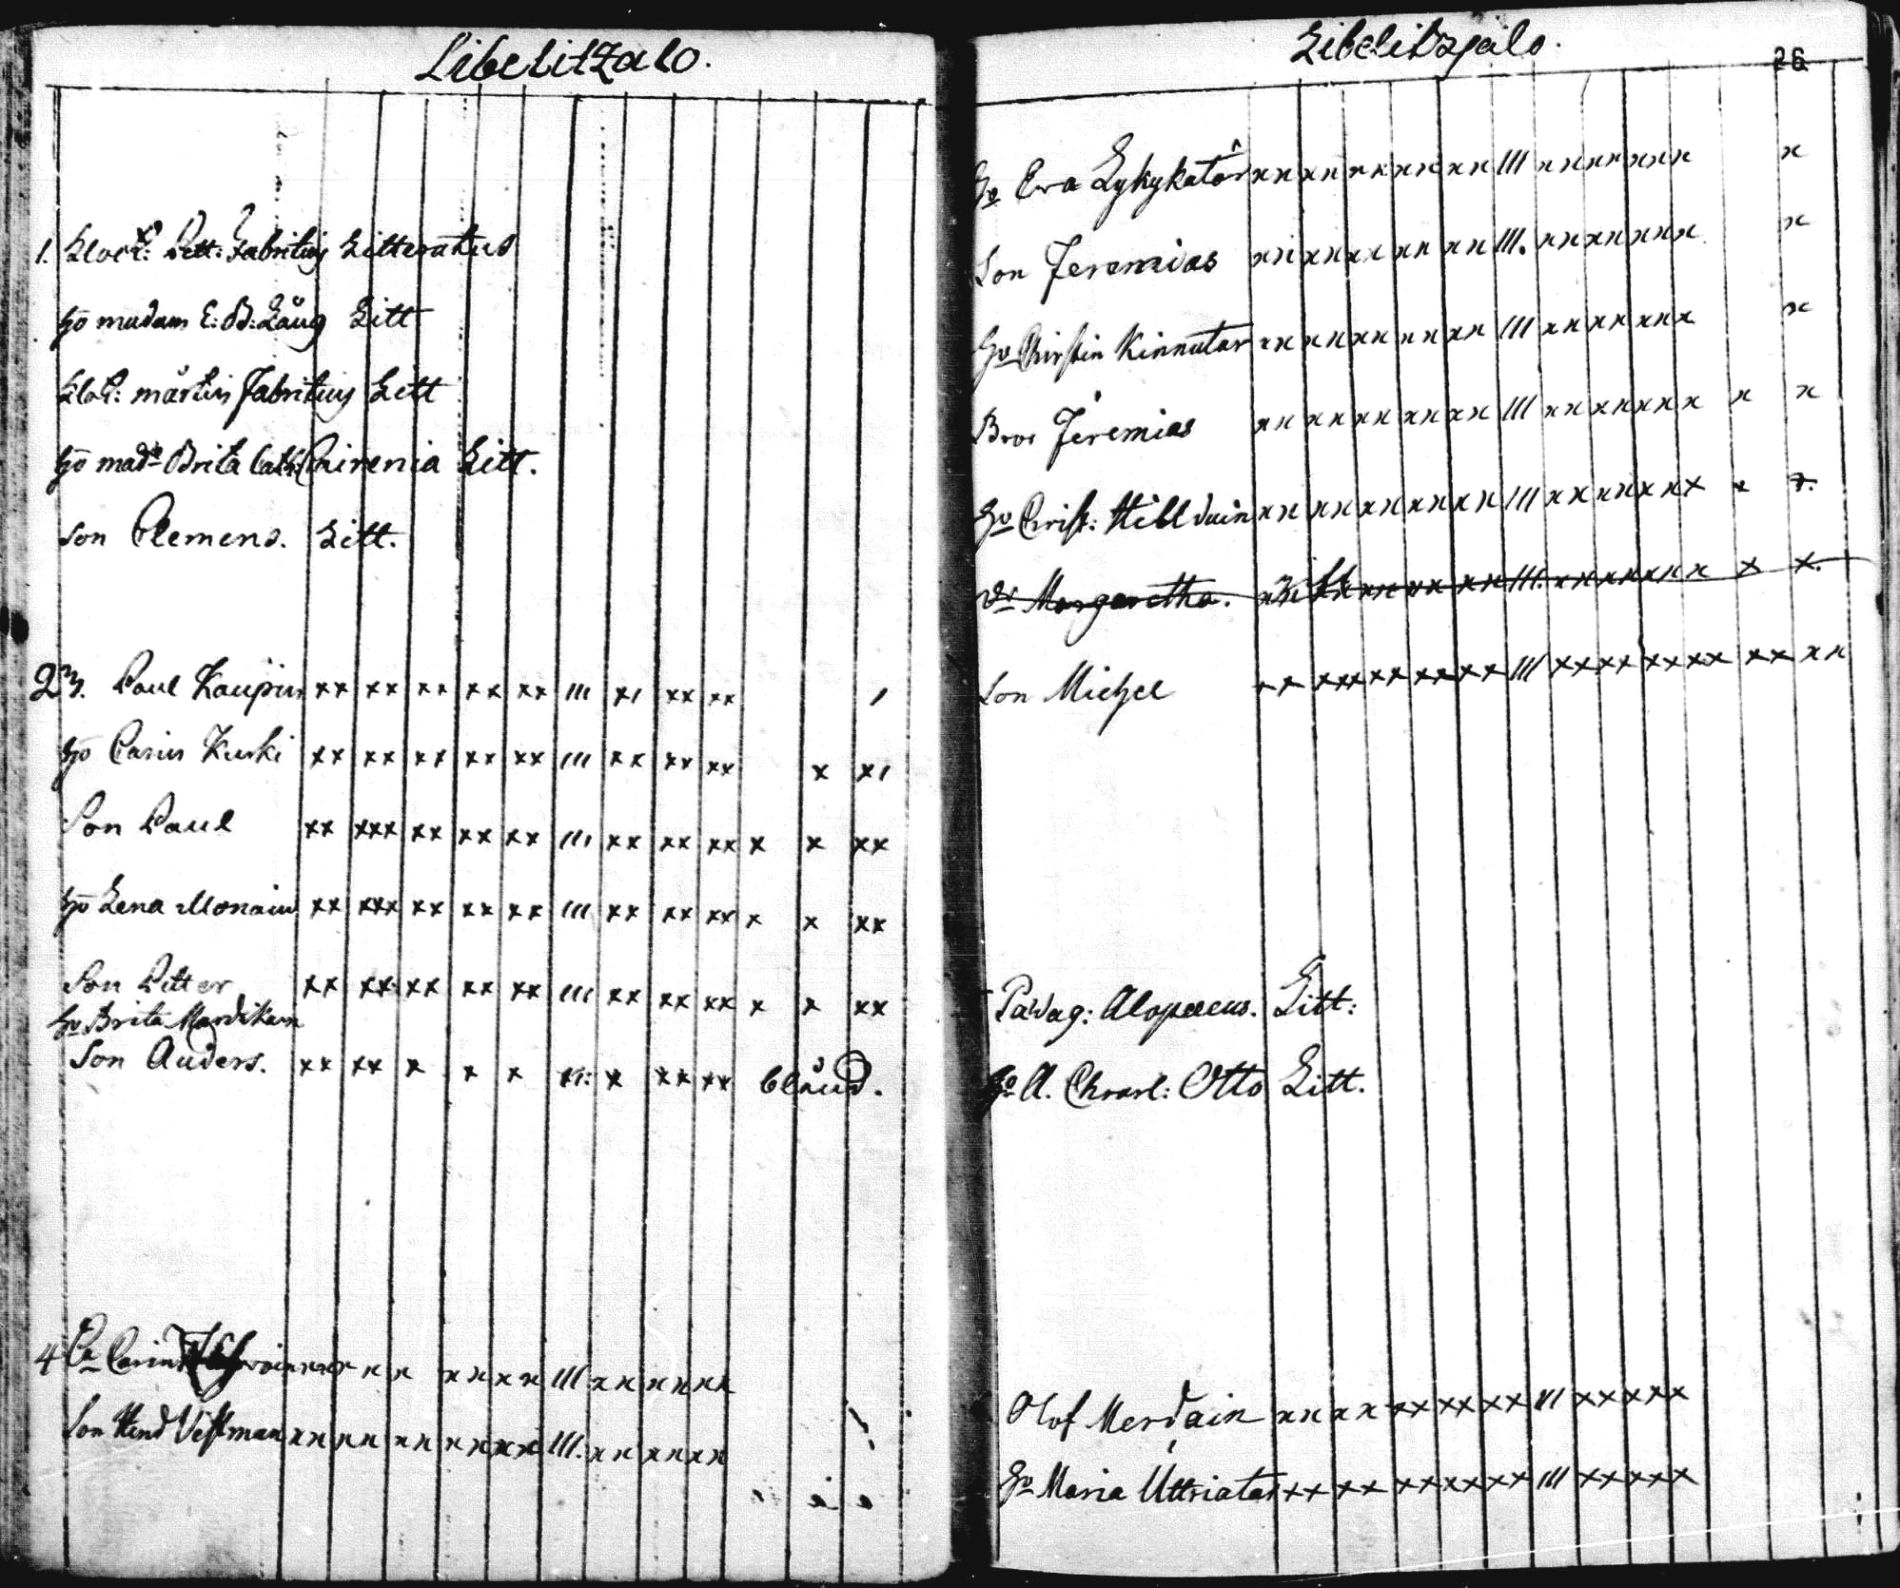 Libelitzalo.
1. Klock: Pett: Fabritius Litteratus
Ho madam E: B: Zaug Litt
Klock: Mårten Fabritius Litt
Ho mad: Brita Cath: Chirenia Litt.
Son Clemens. Litt.
2 3. Paul Kaupin xx xx xx xx xx III xı xx xx
Ho Carin Kuski xx xx xx xx xx III xx xx xx x xı
Son Paul xx xxx xx xx xx III xx xx xx x x xx
Ho Lena Monain xx xxx xx xx xx III xx xx xx x x xx
Son Petter xx xx xx xx xx III xx xx xx x x xx
Ho Brita Mardikain
Son Anders. xx xx x x x x xx xx blind.
4 Carin x x x x x x III x x x x x x
Son Hend Vestman xx xx xx xx xx III. xx xx xx
Libelitzjalo.
26
Ho Eva Lykykatar xx xx xx xx xx III xx xx xx x x
Son Jeremias xx xx xx xx xx III. xx xx xx x x
Ho Christin Kinnutar xx xx xx xx xx III xx xx xx x x
Bror Jeremias xx xx xx xx xx III xx xx xx x x x
Ho Christ: Hilldain xx xx xx xx xx III xx xx xx x x
Dr Margaretha.
Son Michel xx xxx xx xx xx III xx xx xx xx xx xx
Pædag: Alopæus. Litt:
Ho A. Charl: Otto Litt.
Olof Merdain xx xx xx xx xx III xx xx x
Ho Maria Uttriatar xx xx xx xx xx III xx xx x